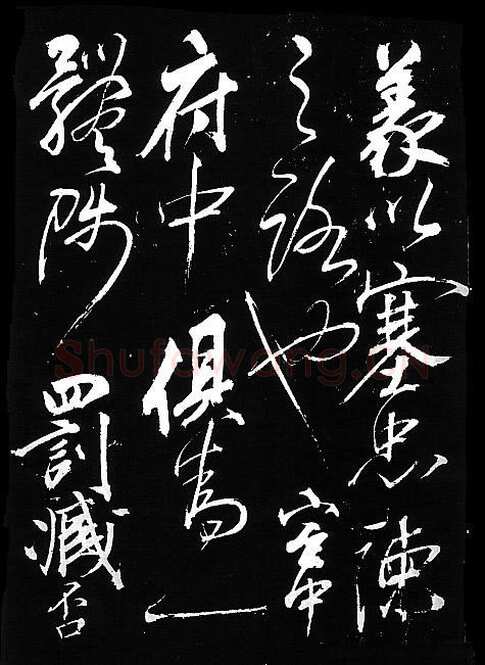 義以塞忠諫
之路也宮中
府中俱為一
體陟罰臧否
Shufawang.CN